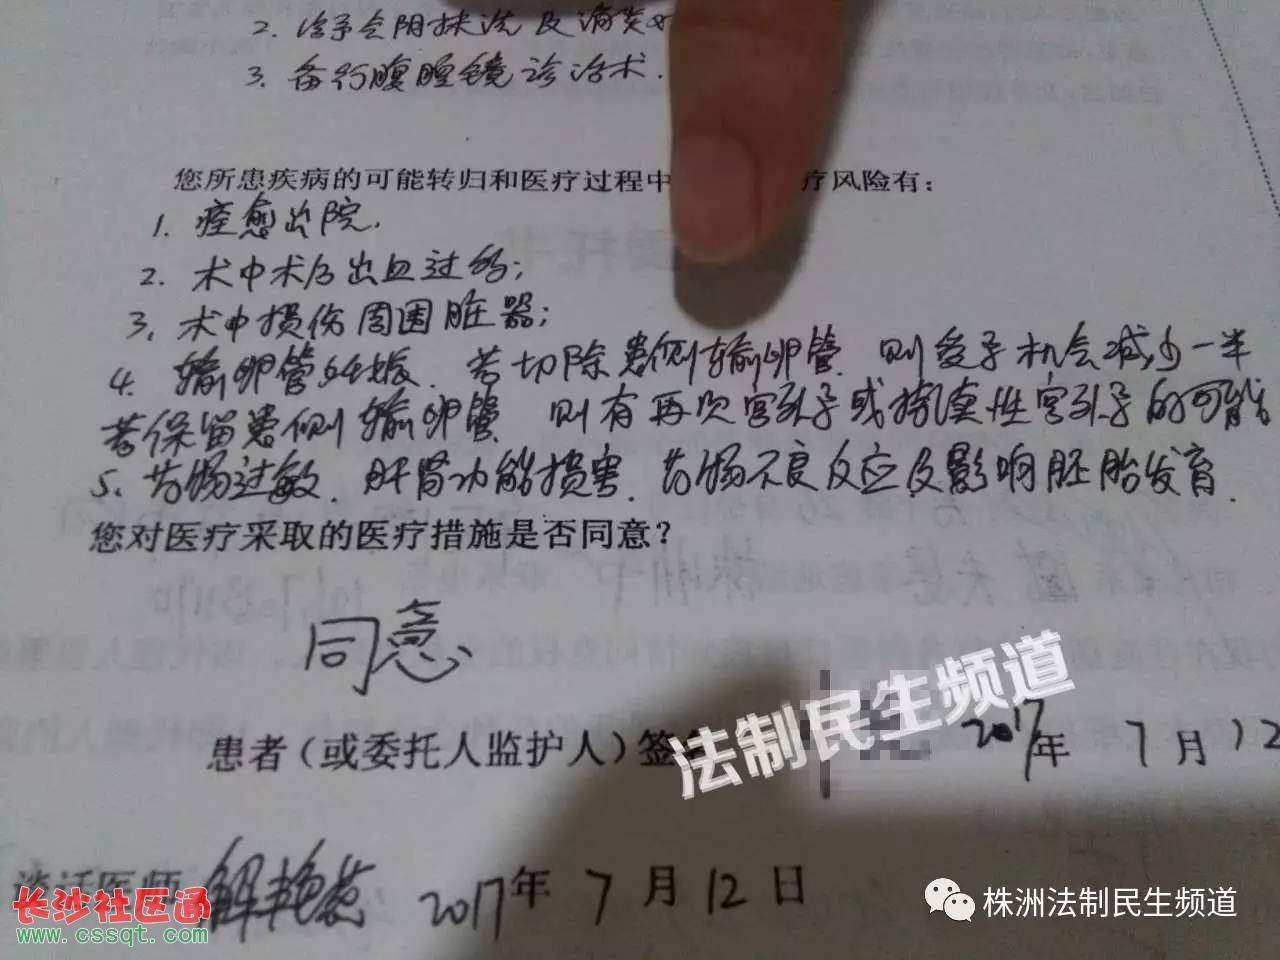 2. 给予会阴抹洗及消炎
3. 备行腹腔镜诊治术.
您所患疾病的可能转归和医疗过程中 疗风险有:
1. 痊愈出院.
2. 术中术后出血过多;
3. 术中损伤周围脏器;
4. 输卵管妊娠. 若切除患侧输卵管. 则受孕机会减少一半
若保留患侧输卵管. 则有再次宫外孕或持续性宫外孕的可能
5. 药物过敏. 肝肾功能损害. 药物不良反应及影响胚胎发育.
您对医疗采取的医疗措施是否同意?
同意
患者(或委托人监护人)签 2017年 7月12
法制民生频道
谈话医师 2017年 7月12日
长沙社区通
www.cssqt.com
株洲法制民生频道